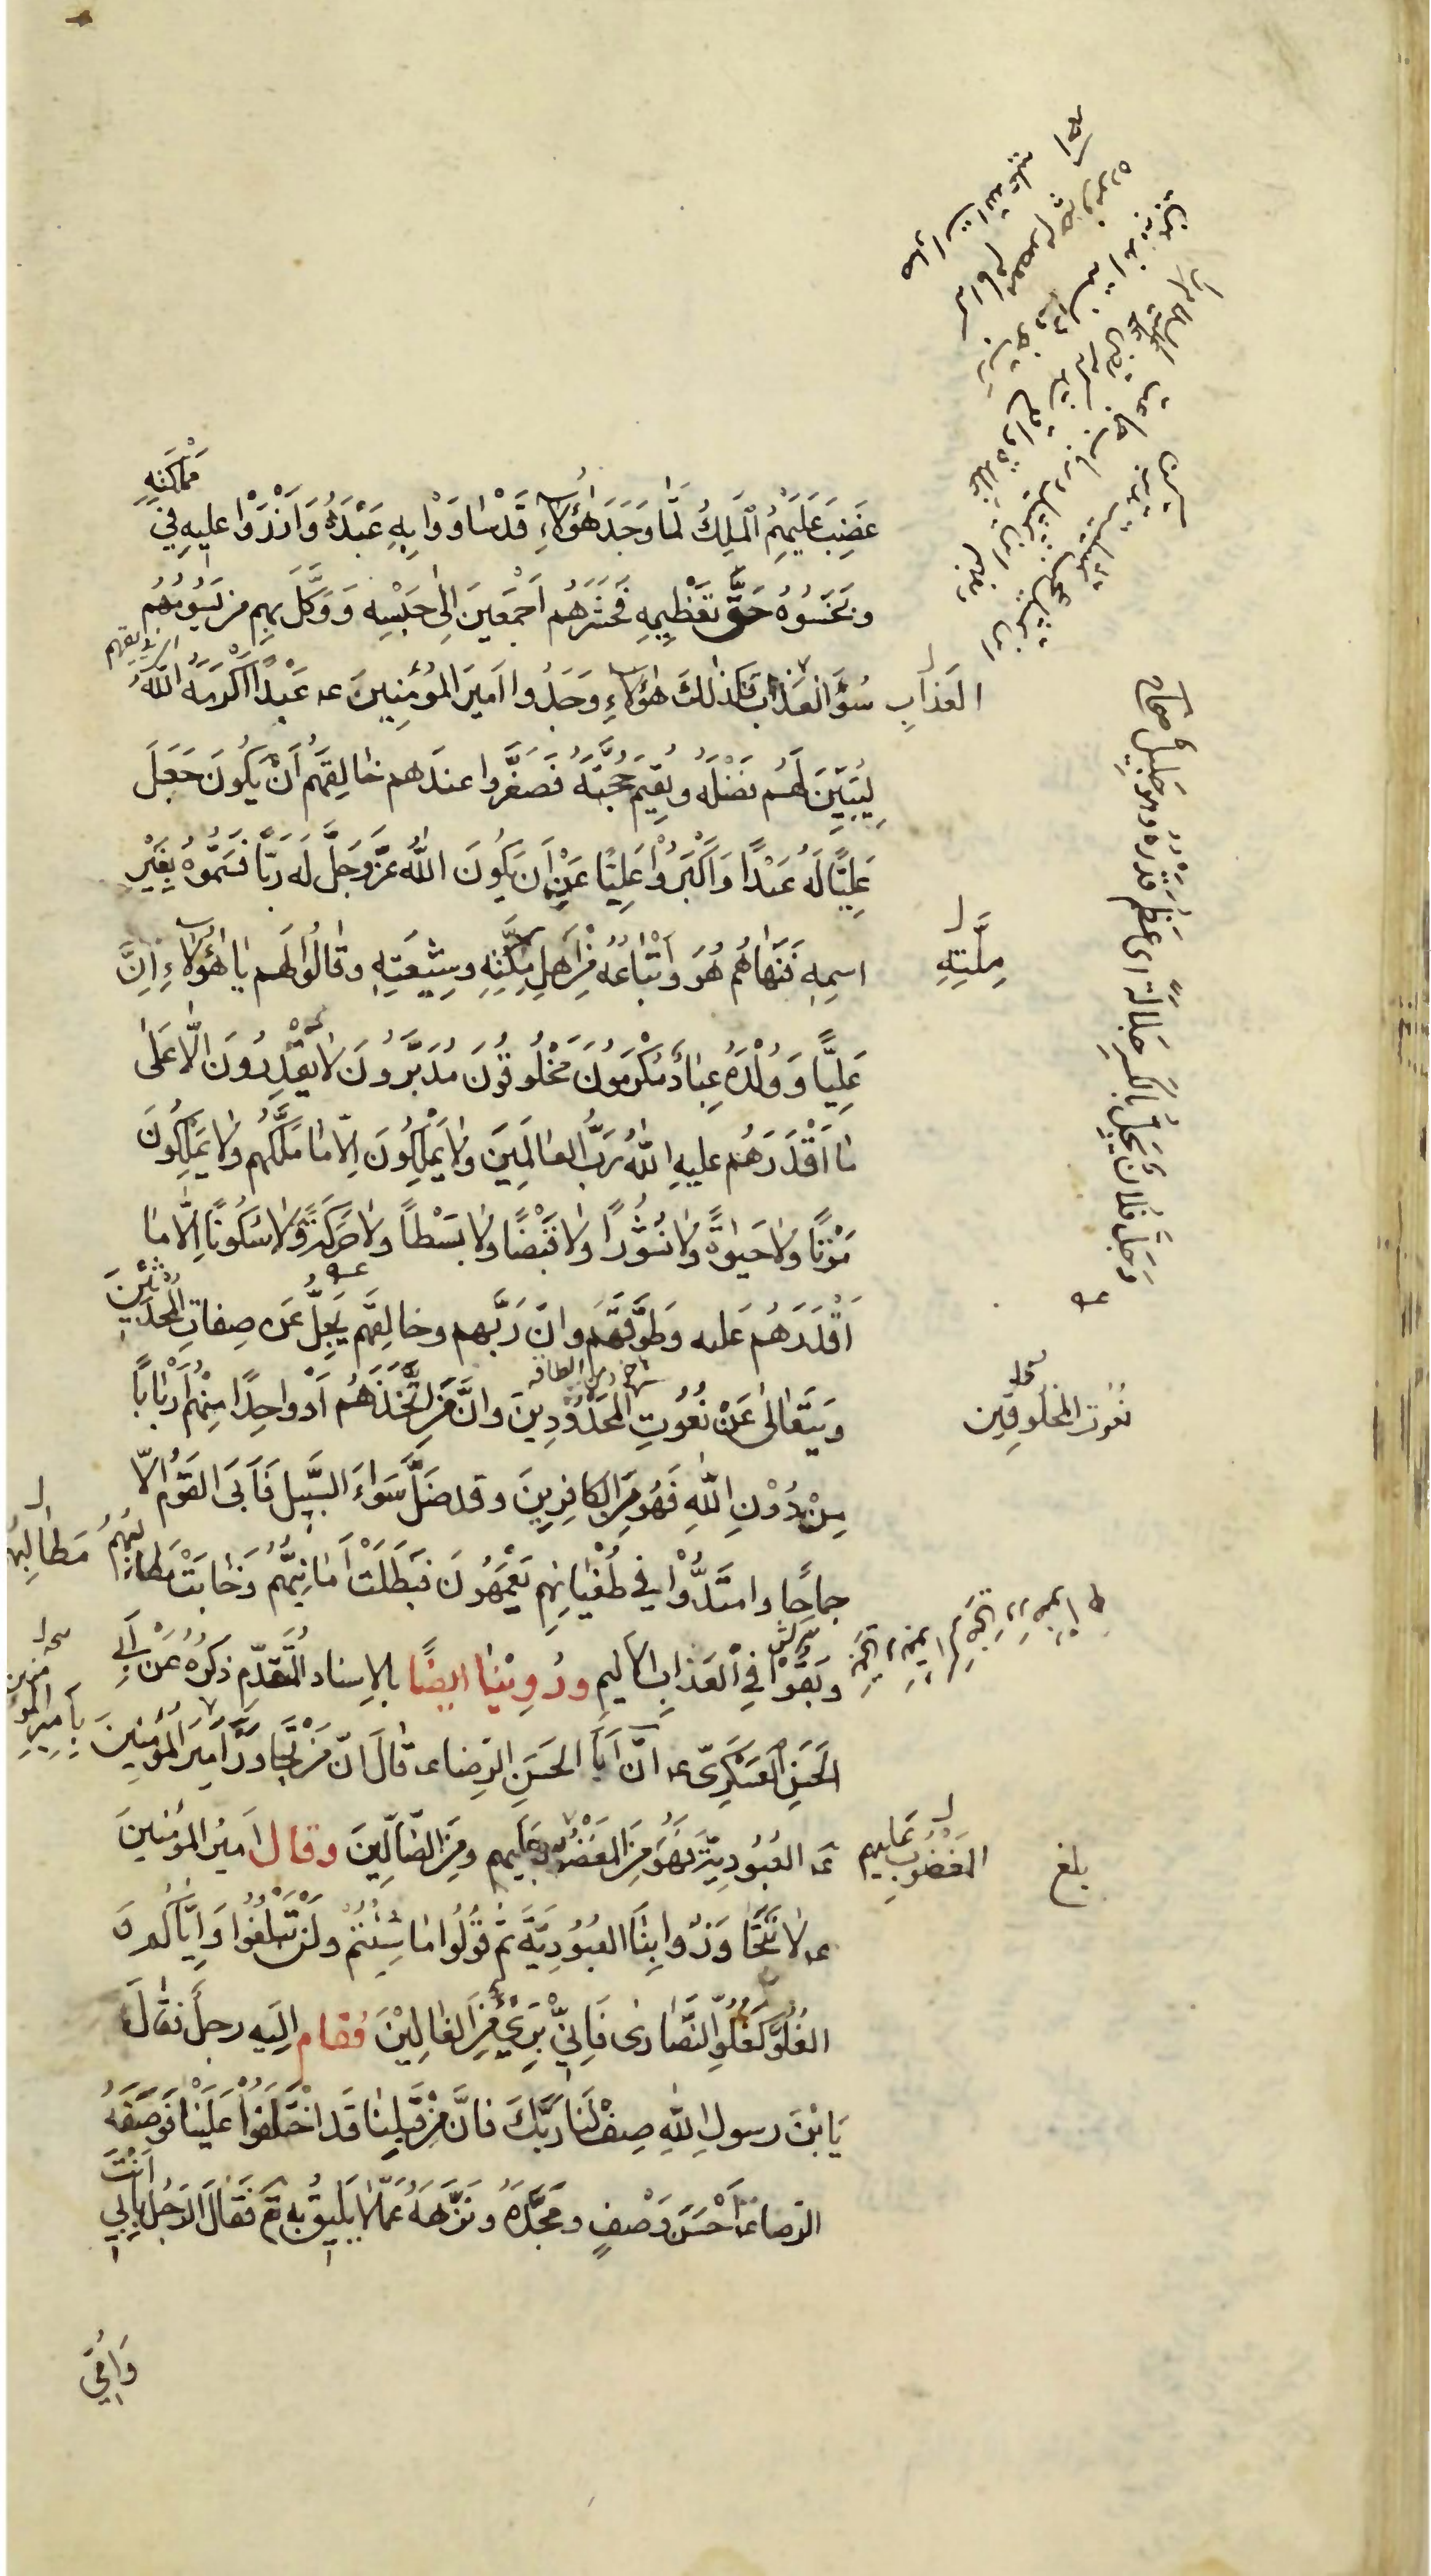 مملكته
غضب عَلَيْهِمُ الْمَلِكُ لَمَّا وَجَدَ هٰؤُلَاءِ قَدْ سَاوَوْا بِهِ عَبْدَهُ وَاَزْرَوْا عليهِ فِي
وبَخَسُوهُ حَقَّ تَعْظِيمِهِ فَحَشَرَهُم اَجْمَعِينَ اِلىٰ حَبْسِهِ وَوَكَّلَ بِهِم من يَسُومُهُم
العَذابِ
سُوءَ العَذاب فكذٰلكَ هٰؤلاءِ وَجَدُوا اميرَ المُؤمِنِينَ ع عَبْدًا اَكْرَمَهُ اللّٰهُ
لِيُبَيِّنَ لَهُم فَضْلَهُ ويُقِيمَ حُجَّتَهُ فَصَغَّروا عندَهم خالِقَهُم أَنْ يَكُونَ جَعَلَ
عَلِيًّا لَهُ عَبْدًا وَاَكْبَرُوْا عَلِيًّا عَنْ اَن يَكُونَ اللّٰهُ عَزَّوَجَلَّ لَه رَبًّا فَسَمَّوْهُ بِغَيْرِ
مِلَّتِهِ
اسمِه فَنَهاهُم هُوَ واَتْباعُه مِنْ اَهلِ مِلَّتِهِ وشِيعَتِهِ وقالُوا لَهم يا هٰؤلاءِ اِنَّ
عَلِيًّا وَوُلْدَهُ عِبادٌ مُكْرَمُونَ مَخْلُوقُونَ مُدَبَّرُونَ لا يَقْدِرُونَ اِلّا عَلىٰ
ما اَقْدَرَهُم عليهِ اللهُ رَبُّ العالَمِينَ ولا يَمْلِكُونَ اِلّا ما مَلَّكَهُم ولا يَمْلِكُونَ
مَوْتًا ولا حَيٰوةً ولا نُشُورًا ولا قَبْضًا ولا بَسْطاً ولا حَرَكَةً ولا سُكُونًا اِلّا ما
اَقْدَرَهُم عَليه وَطَوَّقَهُم وانّ رَبَّهم وخالِقَهُم يَجِلُّ عَن صِفاتِ المُحْدَثِينَ
نعُوت المخلوقين
ويَتَعالىٰ عَنْ نُعُوتِ المَحْدُودِينَ وانَّ مَنِ اتَّخَذَهُم اَوْ واحِدًا مِنْهُم اَرْباباً
مِنْ دُوْنِ اللّٰهِ فَهُو مِنَ الكافِرِينَ وقد ضَلَّ سَواءَ السَّبِيلِ فَاَبَى القَوْمُ اِلّا
جِماحًا وامتَدُّوْا فِي طُغْيانِهِم يَعْمَهُونَ فبَطَلَتْ اَمانِيُّهُم وَخابَتْ مَطالِبُهُم
مَطالِبُهُم
وبَقَوْا فِي العَذابِ الاَلِيمِ ورُوِينا ايضًا بالاِسناد المُتَقَدِّمِ ذِكرُهُ عَنْ اَبِي
الحَسَنِ العَسكَرِىّ ع انّ اَبَا الحَسَنِ الرّضا ع قالَ انّ مَنْ تَجاوَزَ اَمِيرَ المُؤمِنِينَ
بِأَمِيرِ المؤمنين
بلغ
المَغضُوبِ عليهم
ع العُبُودِيَّةَ فَهُوَ مِنَ المَغضُوبِ عليهم ومِنَ الضّالِّينَ وقال امِيرُ المؤمِنِينَ
ع لا تَتَجاوَزُوا بِنَا العُبُودِيَّةَ ثم قُولُوا ما شِئْتُم ولَنْ تَبْلُغُوا وَاِيّاكُم وَ
الغُلُوَّ كَغُلُوِّ النَّصارىٰ فَاِنِّي بَرِيءٌ مِنَ الغالِينَ فقام اِليهِ رجلٌ فقالَ
يَا بْنَ رسولِ اللّٰهِ صِفْ لَنا رَبَّكَ فانّ مَنْ قِبَلَنا قد اختَلَفُوْا عَلَيْنا فَوصَفَهُ
الرّضا ع اَحْسَنَ وَصْفٍ ومَجَّدَهُ ونَزَّهَهُ عَمّا لا يَلِيقُ بِه تع فَقالَ الرّجُلُ بِاَبِي اَنْتَ
وَاُمّي
وجَلَّ فلانٌ يَجِلُّ بالكسرِ جَلالَةً اى عَظُمَ قَدْرُهُ وهو جَلِيلٌ صحاح